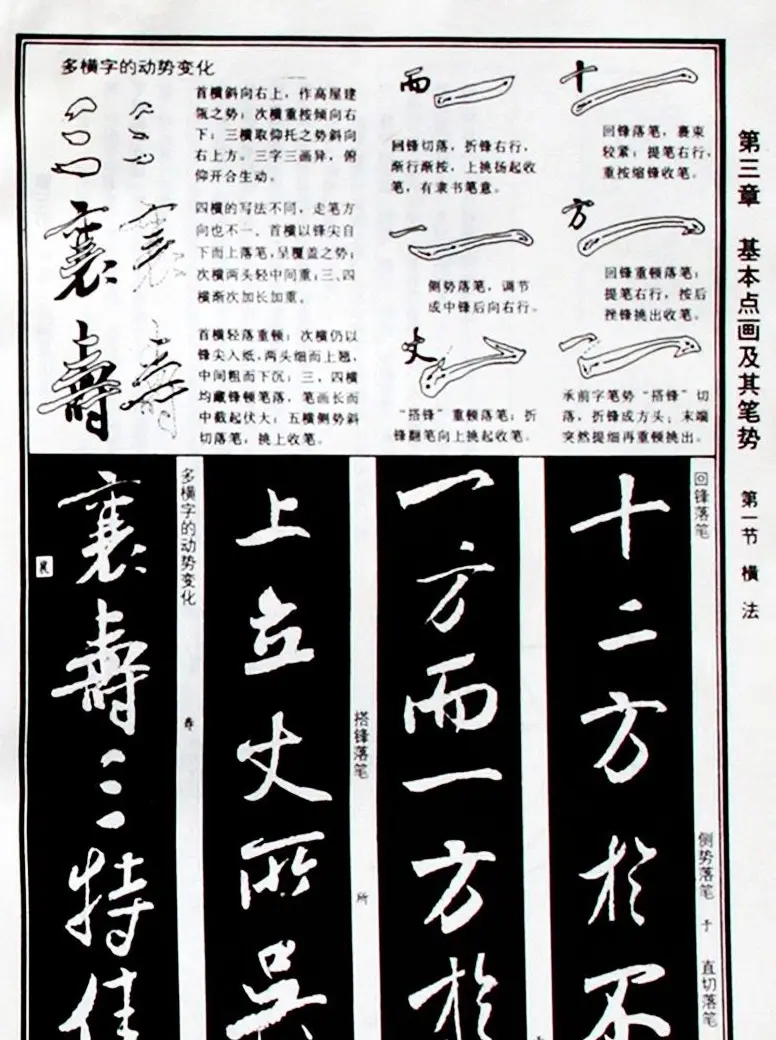 第三章 基本点画及其笔势 第一节 横法
多横字的动势变化
首横斜向右上，作高屋建
瓴之势；次横重按倾向右
下；三横取仰托之势斜向
右上方。三字三画异，俯
仰开合生动。
四横的写法不同，走笔方
向也不一、首横以锋尖自
下而上落笔，呈覆盖之势；
次横两头轻中间重；三、四
横渐次加长加重。
襄
首横轻落重顿；次横仍以
锋尖入纸，两头细而上翘，
中间粗而下沉；三、四横
均藏锋顿笔落，笔画长而
中截起伏大；五横侧势斜
切落笔，挑上收笔。
寿
而
回锋切落，折锋右行，
渐行渐按，上挑扬起收
笔，有隶书笔意。
一
侧势落笔，调节
成中锋后向右行。
丈
“搭锋”重顿落笔；折
锋翻笔向上挑起收笔。
十
回锋落笔，裹束
较紧；提笔右行，
重按缩锋收笔。
方
回锋重顿落笔；
提笔右行，按后
挫锋挑出收笔。
承前字笔势“搭锋”切
落，折锋成方头；末端
突然提细再重顿挑出。
回锋落笔
侧势落笔 于 直切落笔
十二方於不
一方而一方於
搭锋落笔 所
上立丈所吴
多横字的动势变化 寿
襄壽三特佳
襄